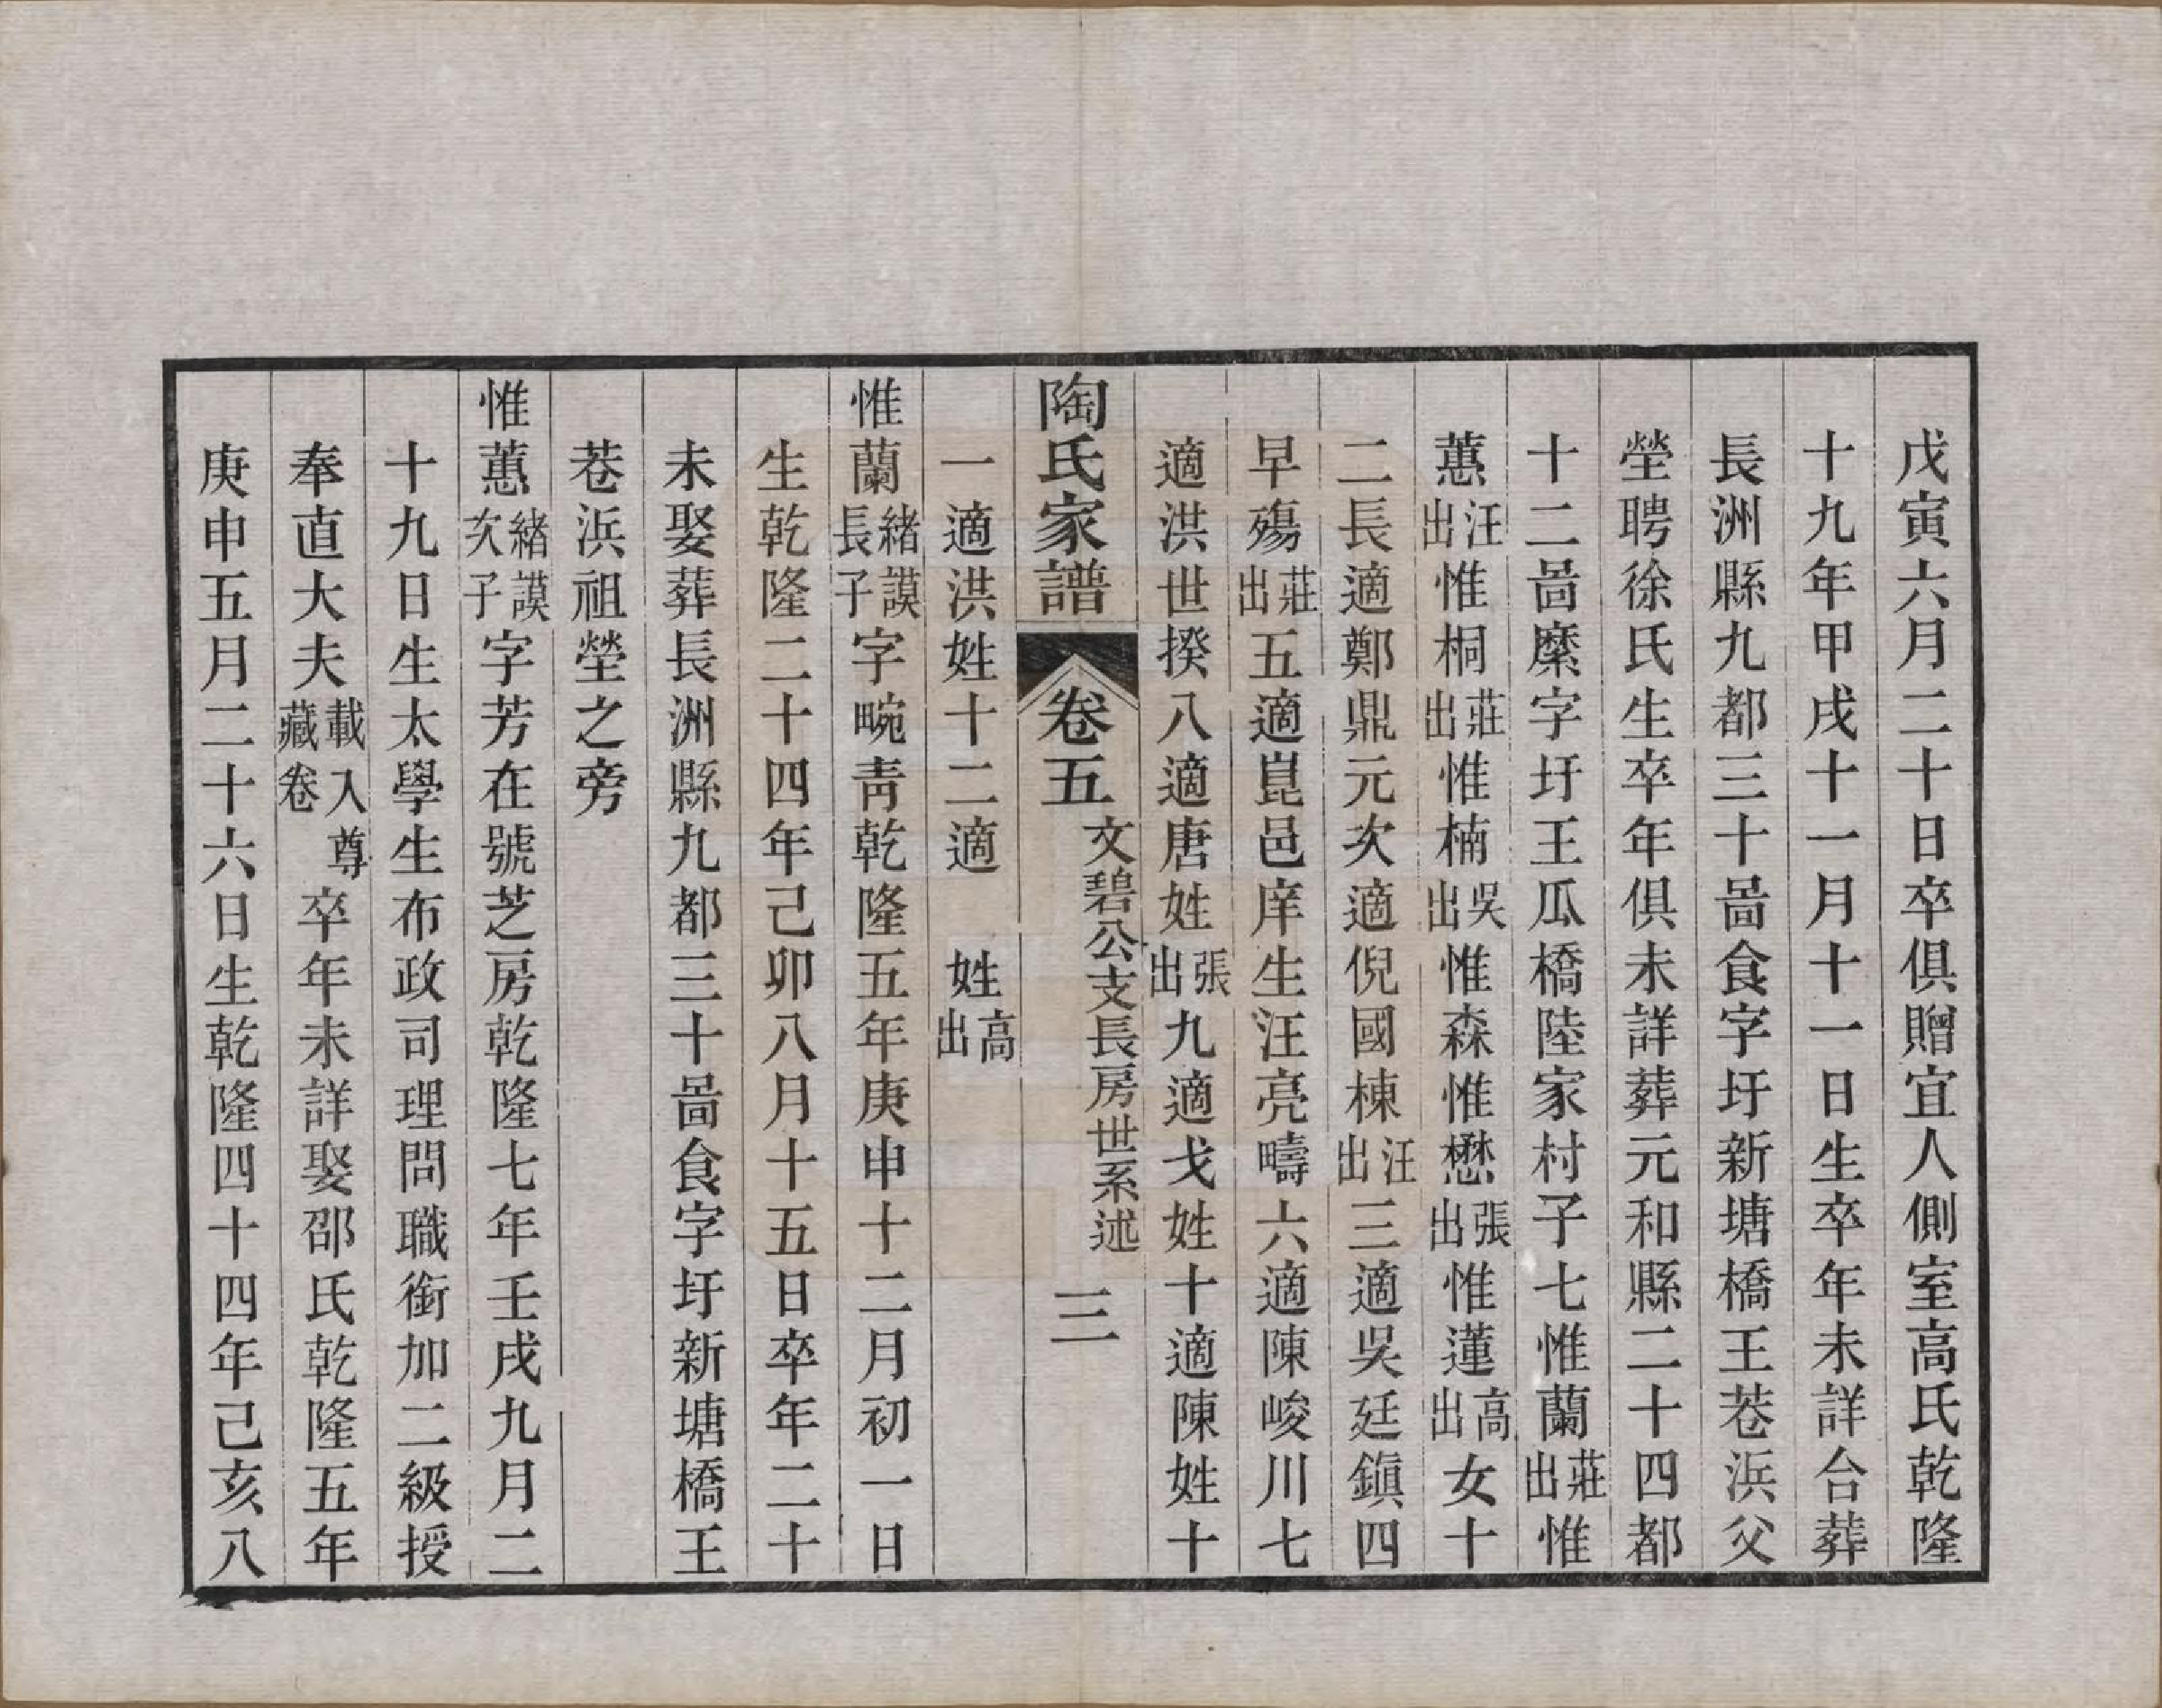 戊寅六月二十日卒俱贈宜人側室高氏乾隆
十九年甲戌十一月十一日生卒年未詳合葬
長洲縣九都三十啚食字圩新塘橋王巷浜父
塋聘徐氏生卒年俱未詳葬元和縣二十四都
十二啚縻字圩王瓜橋陸家村子七惟蘭莊出惟
蕙汪出惟桐莊出惟楠吳出惟森惟懋張出惟蓮高出女十
二長適鄭鼎元次適倪國棟汪出三適吳廷鎮四
早殤莊出五適崑邑庠生汪亮疇六適陳峻川七
適洪世揆八適唐姓張出九適戈姓十適陳姓十
一適洪姓十二適　姓高出
陶氏家譜　卷五　文碧公支長房世系述　三
惟蘭緒謨長子字畹靑乾隆五年庚申十二月初一日
生乾隆二十四年己卯八月十五日卒年二十
未娶葬長洲縣九都三十啚食字圩新塘橋王
巷浜祖塋之旁
惟蕙緒謨次子字芳在號芝房乾隆七年壬戌九月二
十九日生太學生布政司理問職銜加二級授
奉直大夫載入尊藏卷卒年未詳娶邵氏乾隆五年
庚申五月二十六日生乾隆四十四年己亥八